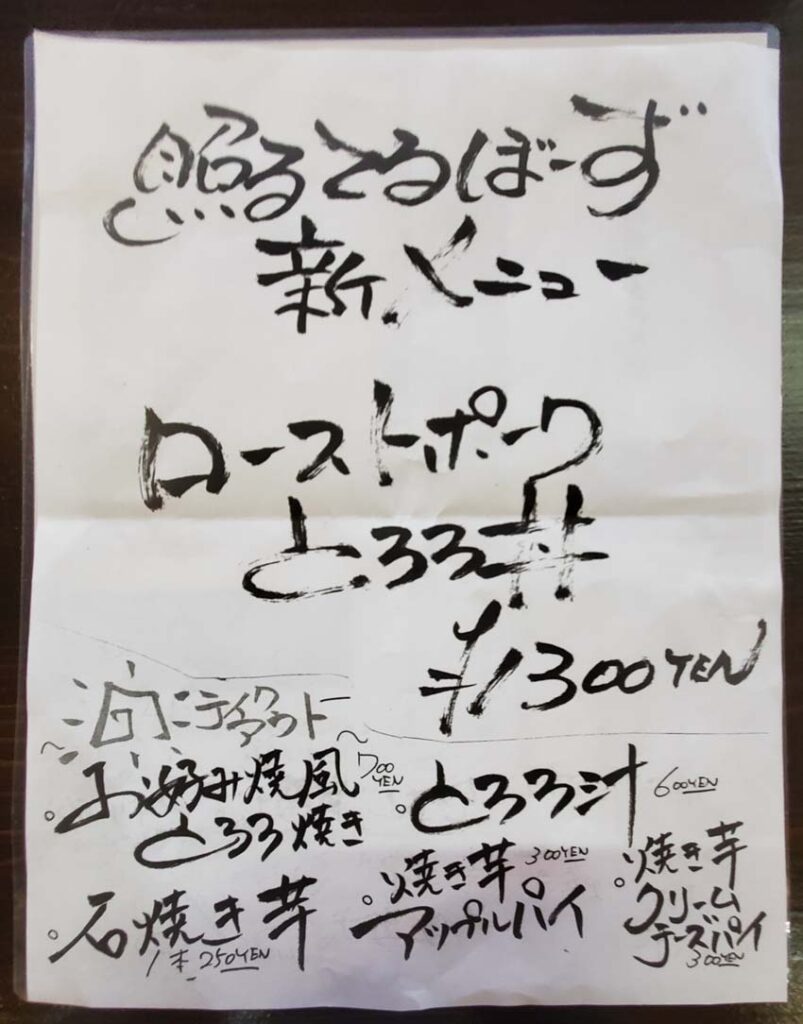 照るてるぼーず
新メニュー
ローストポーク
とろろ丼
¥1300YEN
テイクアウト
。お好み焼風
とろろ焼き
700YEN
。とろろ汁 600YEN
。石焼き芋
1本 250YEN
。焼き芋 300YEN
アップルパイ
。焼き芋
クリーム
チーズパイ
300YEN